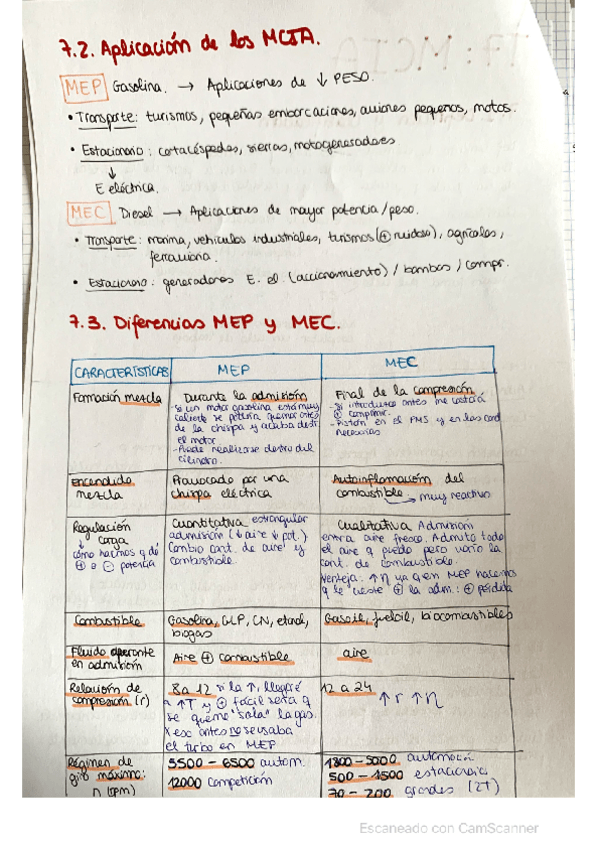 7.2. Aplicación de los MCIA.
MEP Gasolina. → Aplicaciones de ↓ PESO.
• Transporte: turismos, pequeñas embarcaciones, aviones pequeños, motos.
• Estacionario: cortacéspedes, sierras, motogeneradores
↓
E eléctrica.
MEC Diesel → Aplicaciones de mayor potencia/peso.
• Transporte: marina, vehículos industriales, turismos (⊕ ruidoso), agrícolas,
ferroviaria.
• Estacionario: generadores E. el. (accionamiento) / bombas / compr.
7.3. Diferencias MEP y MEC.
CARACTERÍSTICAS MEP MEC
Formación mezcla
Durante la admisión
Si un motor gasolina está muy
caliente se podría quemar antes
de la chispa y acaba destr.
el motor
- Puede realizarse dentro del
cilindro.
Final de la compresión
- Si introduzco antes me costará
⊕ comprimir.
- Pistón en el PMS y en las cond
necesarias
Encendido
mezcla
Provocado por una
chispa eléctrica
Autoinflamación del
combustible → muy reactivo
Regulación
carga
↓
cómo hacemos q dé
⊕ o ⊖ potencia
Cuantitativa estrangular
admisión (↓ aire ↓ pot.)
Cambio cant. de aire y
combustible.
Cualitativa Admisión
entra aire fresco. Admito todo
el aire q puedo pero varío la
cant. de combustible.
Ventaja: ↑η ya q en MEP hacemos
q le cueste ⊕ la adm.: ⊕ pérdida
Combustible
Gasolina, GLP, GN, etanol,
biogas
Gasoil, fueloil, biocombustibles
Fluido operante
en admisión
Aire ⊕ combustible
aire
Relación de
compresión (r)
8 a 12 si la ↑, llegaré
a ↑T y ⊕ fácil será q
se queme "sola" la gas.
X eso antes no se usaba
el turbo en MEP
12 a 24
↑ r ↑ η
Régimen de
giro máximo:
n (rpm)
5500 - 6500 autom.
12000 competición
1800-5000 automoci.
500 - 1500 estacionario
70 - 200 grandes (2T)
Escaneado con CamScanner